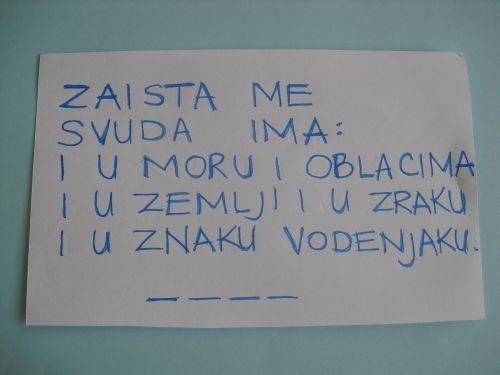 ZAISTA ME
SVUDA IMA:
I U MORU I OBLACIMA
I U ZEMLJI I U ZRAKU
I U ZNAKU VODENJAKU.
_ _ _ _